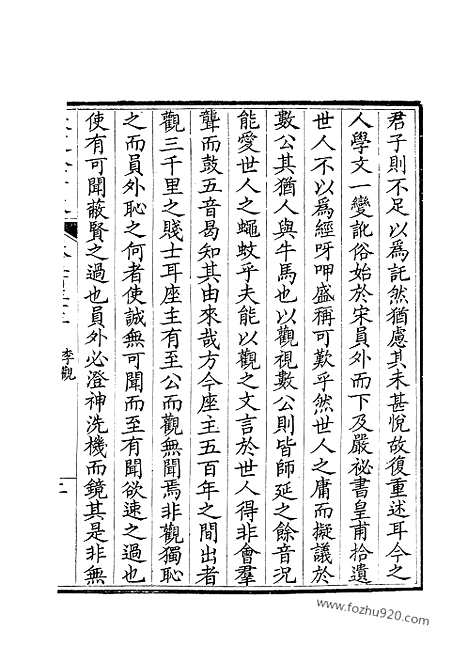 君子則不足以為託然猶慮其未甚悅故復重述耳今之
人學文一變訛俗始於宋員外而下及嚴祕書皇甫拾遺
世人不以為經呀呷盛稱可歎乎然世人之庸而擬議於
數公其猶人與牛馬也以觀視數公則皆師延之餘音況
能愛世人之蠅蚊乎夫能以觀之文言於世人得非會羣
聾而鼓五音曷知其由來哉方今座主五百年之間出者
觀三千里之賤士耳座主有至公而觀無聞焉非觀獨恥
之而員外恥之何者使誠無可聞而至有聞欲速之過也
使有可聞蔽賢之過也員外必澄神洗機而鏡其是非無
李觀
www.fozhu920.com